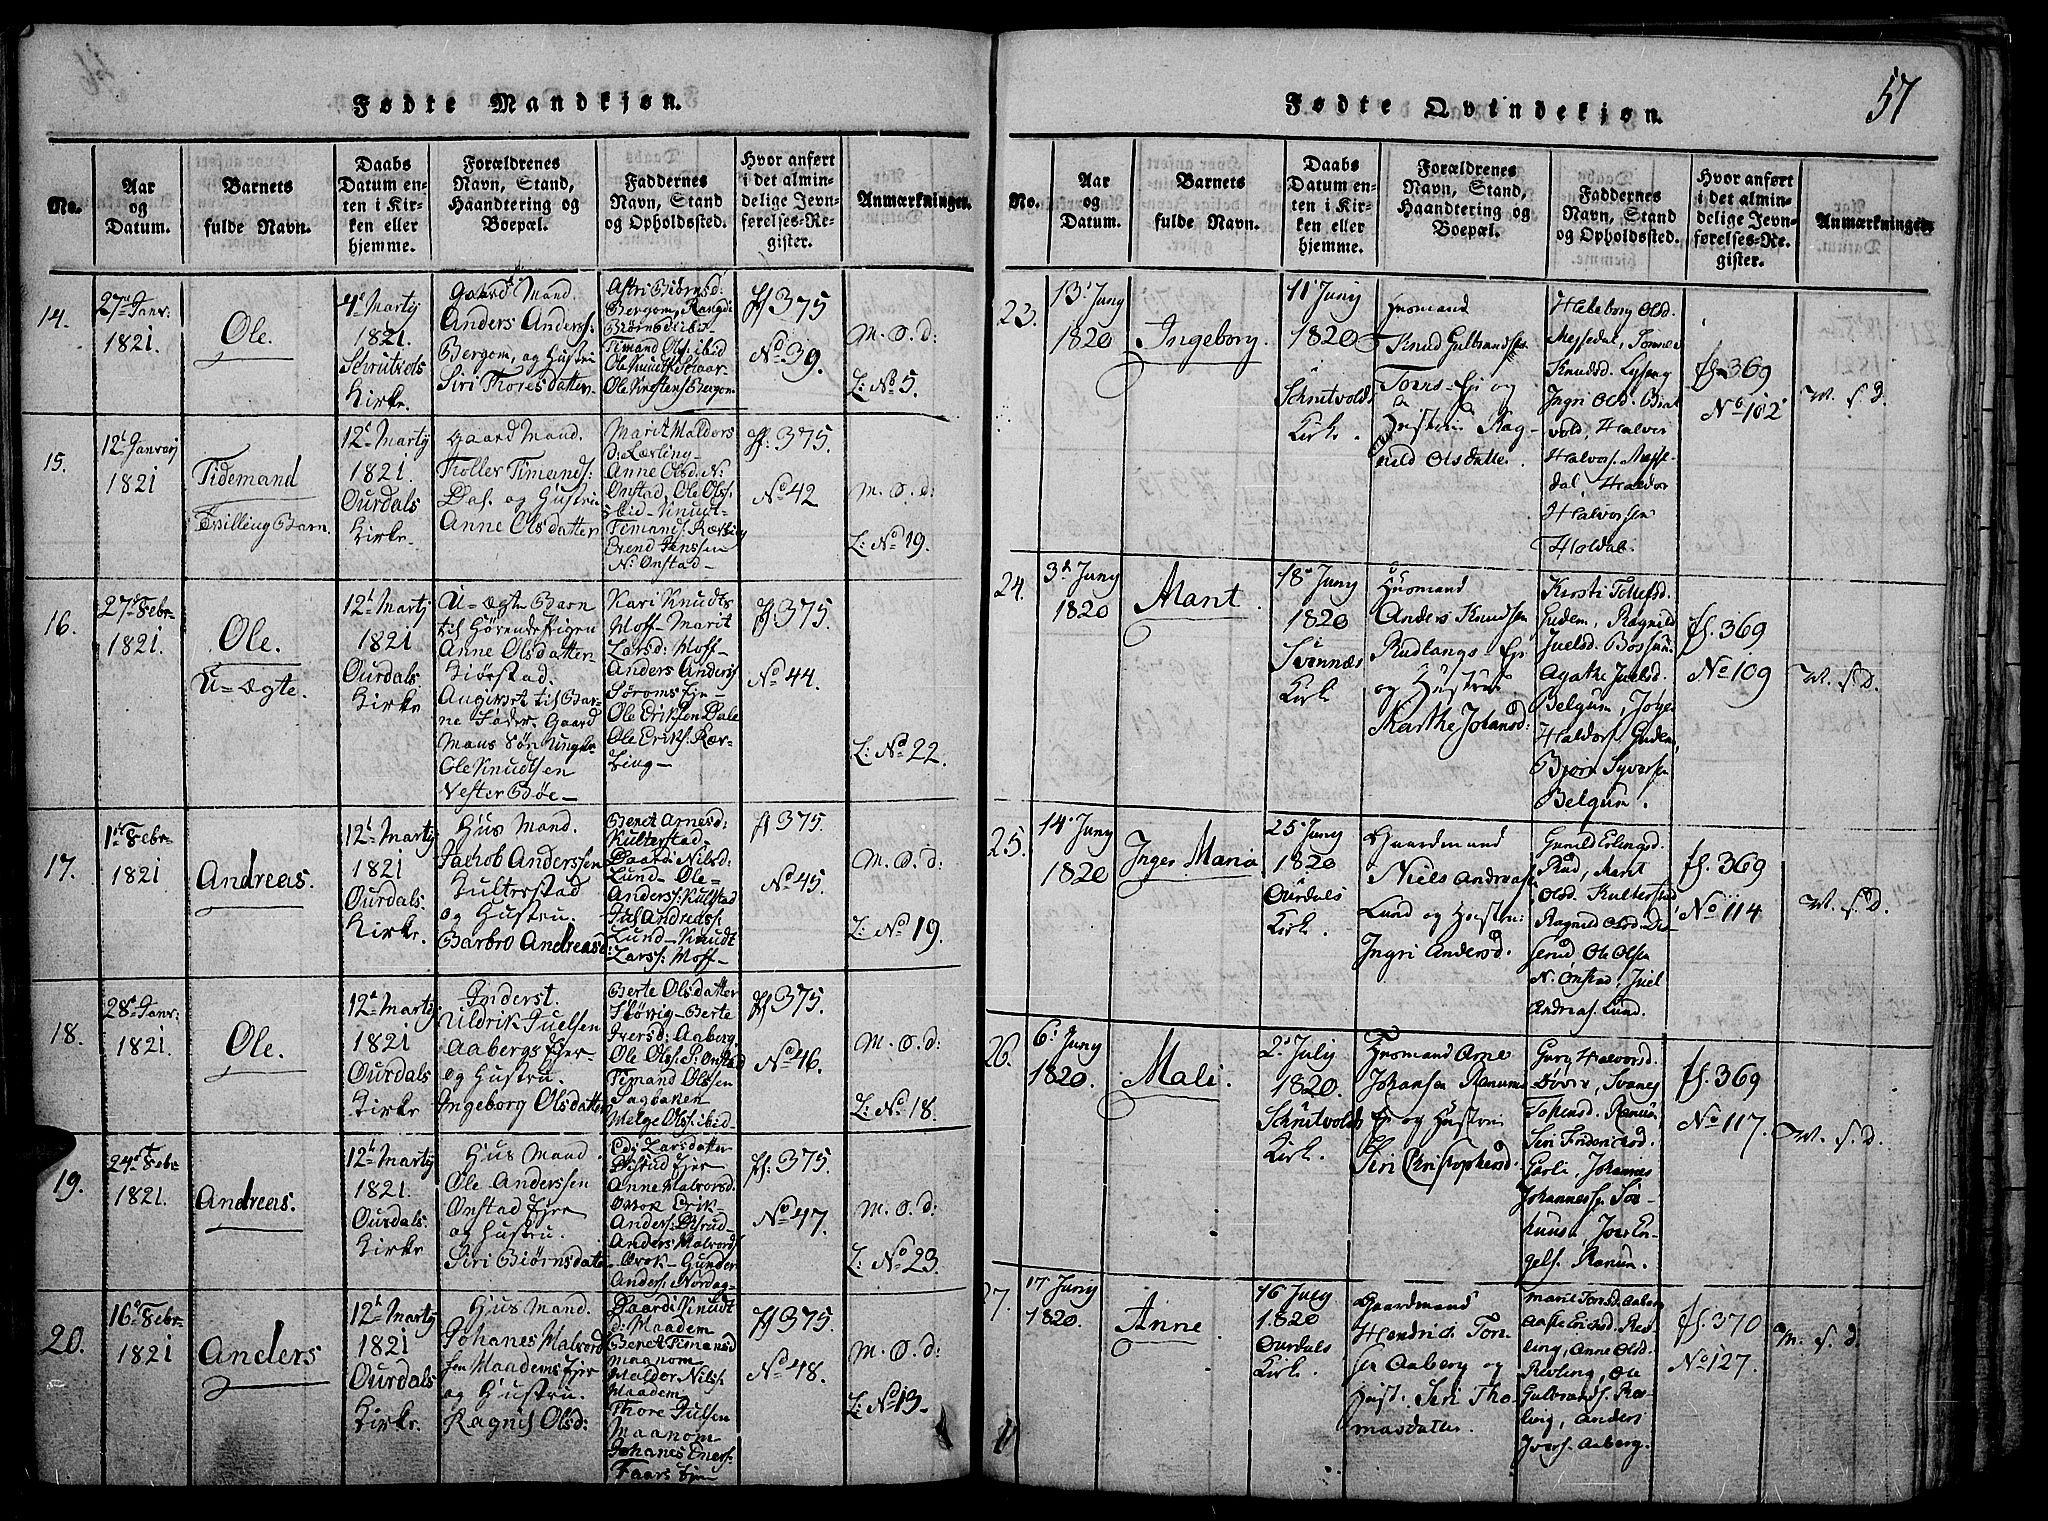 57
Fødte Mandkjøn.
No.
Aar
og
Datum.
Barnets
fulde Navn.
Daabs
Datum en-
ten i Kir-
ken eller
hjemme.
Forældrenes
Navn, Stand,
Haandtering og
Boepæl.
Faddernes
Navn, Stand
og Opholdssted.
Hvor anført
i det almin-
delige Jevn-
førelses-Re-
gister.
Anmærkninger.
14.
27de Janr:
1821.
Ole.
4de Martij
1821.
Schrutvols
Kirke.
Gaard Mand.
Anders Anderss:
Bergom, og Hustru
Siri Thoresdatter
Astri Biørnsd:
Bergom, Rangdi
Biørnsd. ibid
Timand Olss. ibid
Ole Knudts. Skaar
Ole Knutsens Bergom
ff 375
No 39.
M. O. d:
L: No 5.
15.
12t Januarij
1821
Tidemand
Tvilling Barn.
12t Martij
1821.
Ourdals
Kirke.
Gaard Mand.
Tholler Timands:
Dal. og Hustru
Anne Olsdatter
Marit Haldors
D: Lærling
Anne Olsd. N:
Onstad, Ole Olss.
ibid - Knudt
Timands. Rærling
Erend Jenssen
N: Onstad -
ff: 375.
No 42
M. O. d:
L: No 19.
16.
27de Febr
1821.
Ole.
U-ægte.
12t Martij
1821
Ourdals
Kirke
U-ægte Barn
til Hørende Pigen
Anne Olsdatter
Kiørstad.
Angivet til Bar-
ne Fader. Gaard
Mans Søn Ungkr.
Ole Knudtsen
Vester Bøe -
Kari Knudts
Moff Marit
Larsd: Moff -
Anders Anders
Søroms Ejer -
Ole Eriksen Dale
Ole Eriks. Rær-
ling -
ff 375.
No 44.
L: No 22.
17.
1de Febr
1821.
Andreas.
12t Martij
1821
Ourdals.
Kirke.
Hus Mand.
Jachob Anderssen
Kulterstad
og Hustru.
Barbro Andreasd:
Beret Arnesd:
Kulterstad -
Baardi Nilsd:
Lund - Ole
Anderss: Kulstad
Jul Andreass:
Lund - Knudt
Larss: Moff -
ff 375.
No 45.
M. O. d:
L: No 19.
18.
28de Janr:
1821.
Ole.
12t Martij
1821
Ourdals
Kirke
Inderst.
Uldrik Juelsen
Aabergs Ejer
og Hustru.
Ingeborg Olsdatter
Berte Olsdatter
Skøvig - Berte
Iversd: Aaberg
Ole Olss. S: Onstad
Timand Olssen
Sagbaken
Helge Olss. ibid -
ff 375.
No 46.
M. O. d:
L: No 18.
19.
24de Febr
1821.
Andreas.
12t Martij
1821.
Ourdals
Kirke
Hus Mand.
Ole Anderssen
Onstad Ejer
og Hustru.
Siri Biørnsdatter
Edj Larsdatter
Østud Ejer
Anne Halvorsd.
Brok Erik
Anders: Østud -
Anders Halvords
Brok - Gunder
Anders. Nordag -
ff: 375.
No 47.
M. O. d:
L: No 23.
20.
16de Febr
1821
Anders
12t Martij
1821
Ourdals
Kirke.
Hus Mand.
Johanes Halvord
sen Maadems Ejer
og Hustru.
Ragnil Olsd:
Baardi Knudt
d: Maadem
Beret Timansd
Maanom
Haldor Nils:
Maadem
Thore Julsen
Maanom
Johanes Eners:
Faars Ejer
ff 375.
No 48.
M. O. d:
L: No 13.
Fødte Qvindekjøn.
No.
Aar
og
Datum.
Barnets
fulde Navn.
Daabs
Datum en-
ten i Kir-
ken eller
hjemme.
Forældrenes
Navn, Stand,
Haandtering og
Boepæl.
Faddernes
Navn, Stand
og Opholdssted.
Hvor anført
i det almin-
delige Jevn-
førelses-Re-
gister.
Anmærkninger
23.
13. Juny
1820
Ingeborg.
11. Juny
1820
Schrutvolds
Kirk.
Huusmand
Knud Gulbrandsen
Torns-Ej og
Hustrue Rag-
nild Olsdatter.
Heleborg Olsd.
Messedal, Tonnæs
Knudsd. Lyseng
Ingri Olsd. Biat
vold, Halvor
Halvors. Messe-
dal, Haldor
Halvorsen
Holdal.
fs. 369
No 102
M. f. d.
24.
3d. Juny
1820
Marit.
18. Juny
1820
Svennæs
Kirk.
Huusmand
Anders Knudsen
Rudlangs Ej
og Hustrue
Marthe Johansd:
Kirsti Tollefsd.
Gudem, Ragnild
Juelsd. Bøssum
Agathe Juelsd.
Belgum, Jørgen
Haldors. Gudem,
Bjørn Syversen
Belgum.
fs. 369
No 109
M. f. d.
25.
14. Juny
1820
Inger Maria
25. Juny
1820
Ourdals
Kirk.
Gaardmand
Niels Andreas.
Lund og Hustr:
Ingri Andersd.
Gunild Erlingsd.
Rud, Marit
Olsd. Kulterstad,
Ragnild Olsd. Di-
serud, Ole Olsen
N. Onstad, Juel
Andreas. Lund.
fs. 369
No 114
M. f. d.
26.
6. Juny
1820.
Mali.
2. July
1820.
Schrutvolds
Kirk.
Huusmand Arne
Johansen Ranum
Ej og Hustrue
Siri Christophersd.
Gury Halvorsd.
Døvre, Svanes
Tostensd. Ranum
Siri Friderichsd.
Garli, Johannes
Johanness. Sos-
huus, Joer En-
gels. Ranum.
fs. 369
No 117.
M. f. d.
27.
17 Juny
1820.
Anne.
16 July
1820
Ourdals
Kirk.
Gaardmand
Hendrich Tor-
ser Aaberg og
Hust. Siri Tho-
masdatter.
Marit Torsd. Aaberg
Aase Erichsd. Røv-
ling, Anne Olsd.
Røvling, Ole
Gulbrands. Røv-
ling, Anders
Ivers. Aaberg.
fs. 370
No 127.
M. f. d.